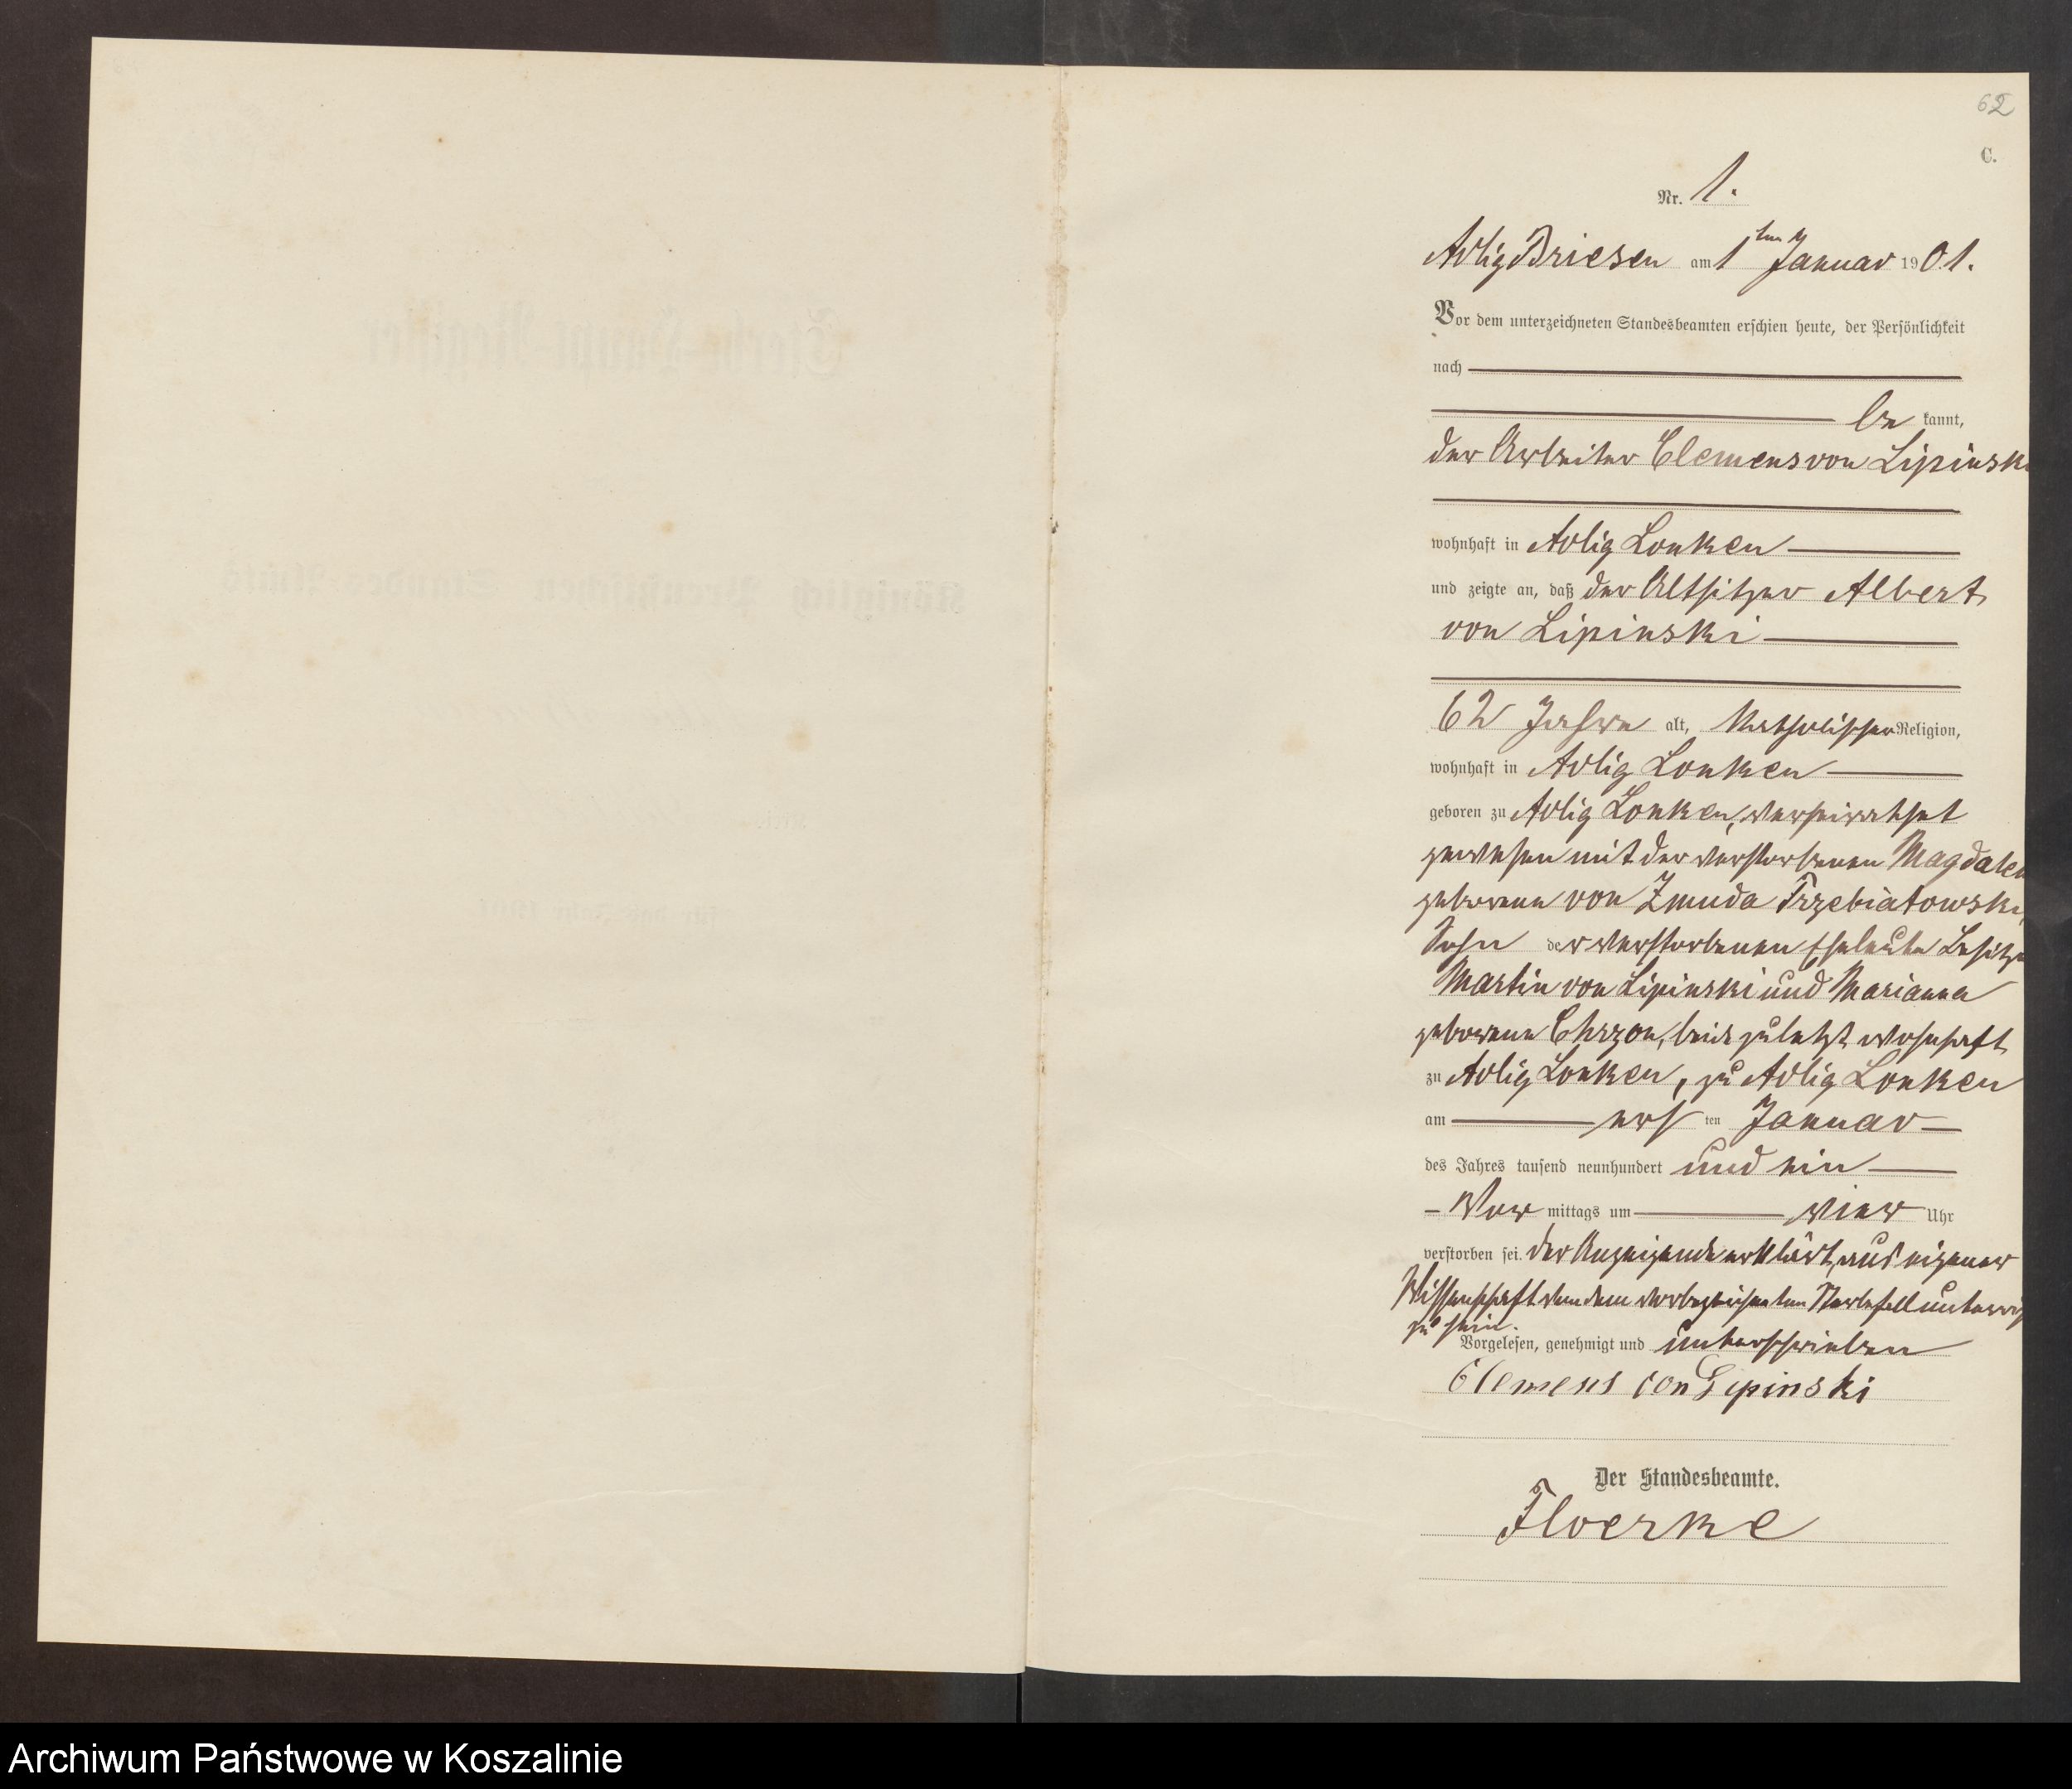 62
C.
Nr. 1.
Adlig Briesen am 1ten Januar 1901.
Vor dem unterzeichneten Standesbeamten erschien heute, der Persönlichkeit
nach
be kannt,
der Arbeiter Clemens von Lipinski
wohnhaft in Adlig Lonken
und zeigte an, daß der Altsitzer Albert
von Lipinski
62 Jahre alt, katholischer Religion,
wohnhaft in Adlig Lonken
geboren zu Adlig Lonken, verheirathet
gewesen mit der verstorbenen Magdalen
geborene von Zmuda Trzebiatowski,
Sohn der verstorbenen Eheleute Besitzer
Martin von Lipinski und Marianna
geborene Chrzon, beide zuletzt wohnhaft
zu Adlig Lonken, zu Adlig Lonken
am ers ten Januar
des Jahres tausend neunhundert und ein
Vor mittags um vier Uhr
verstorben sei. Der Anzeigende erklärt, aus eigener
Wissenschaft von dem vorbezeichneten Sterbefall unterrich
zu sein.
Vorgelesen, genehmigt und unterschrieben
Clemens von Lipinski
Der Standesbeamte.
Floerke
Archiwum Państwowe w Koszalinie